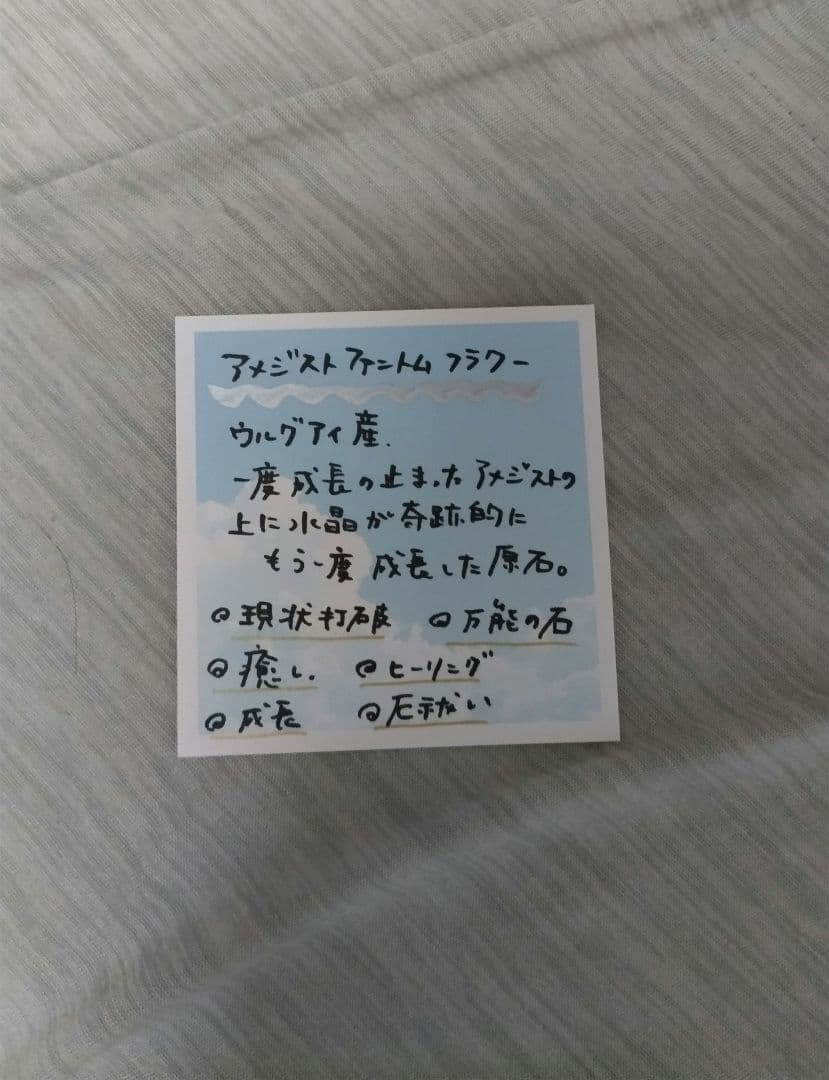 アメジストファントムフラワー
ウルグアイ産.
一度成長の止まったアメジストの
上に水晶が奇跡的に
もう一度 成長した原石。
◎現状打破 ◎万能の石
◎癒し. ◎ヒーリング
◎成長 ◎厄祓い